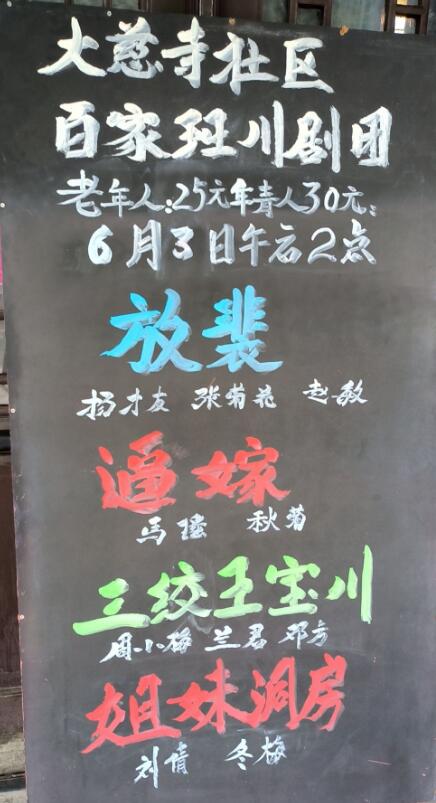 大慈寺社区
百家班川剧团
老年人:25元年青人30元:
6月3日午后2点
放裴
扬才友 张菊花 赵敏
逼嫁
马瑶 秋菊
三绞王宝川
周小梅 兰君 邓方
姐妹洞房
刘倩 冬梅